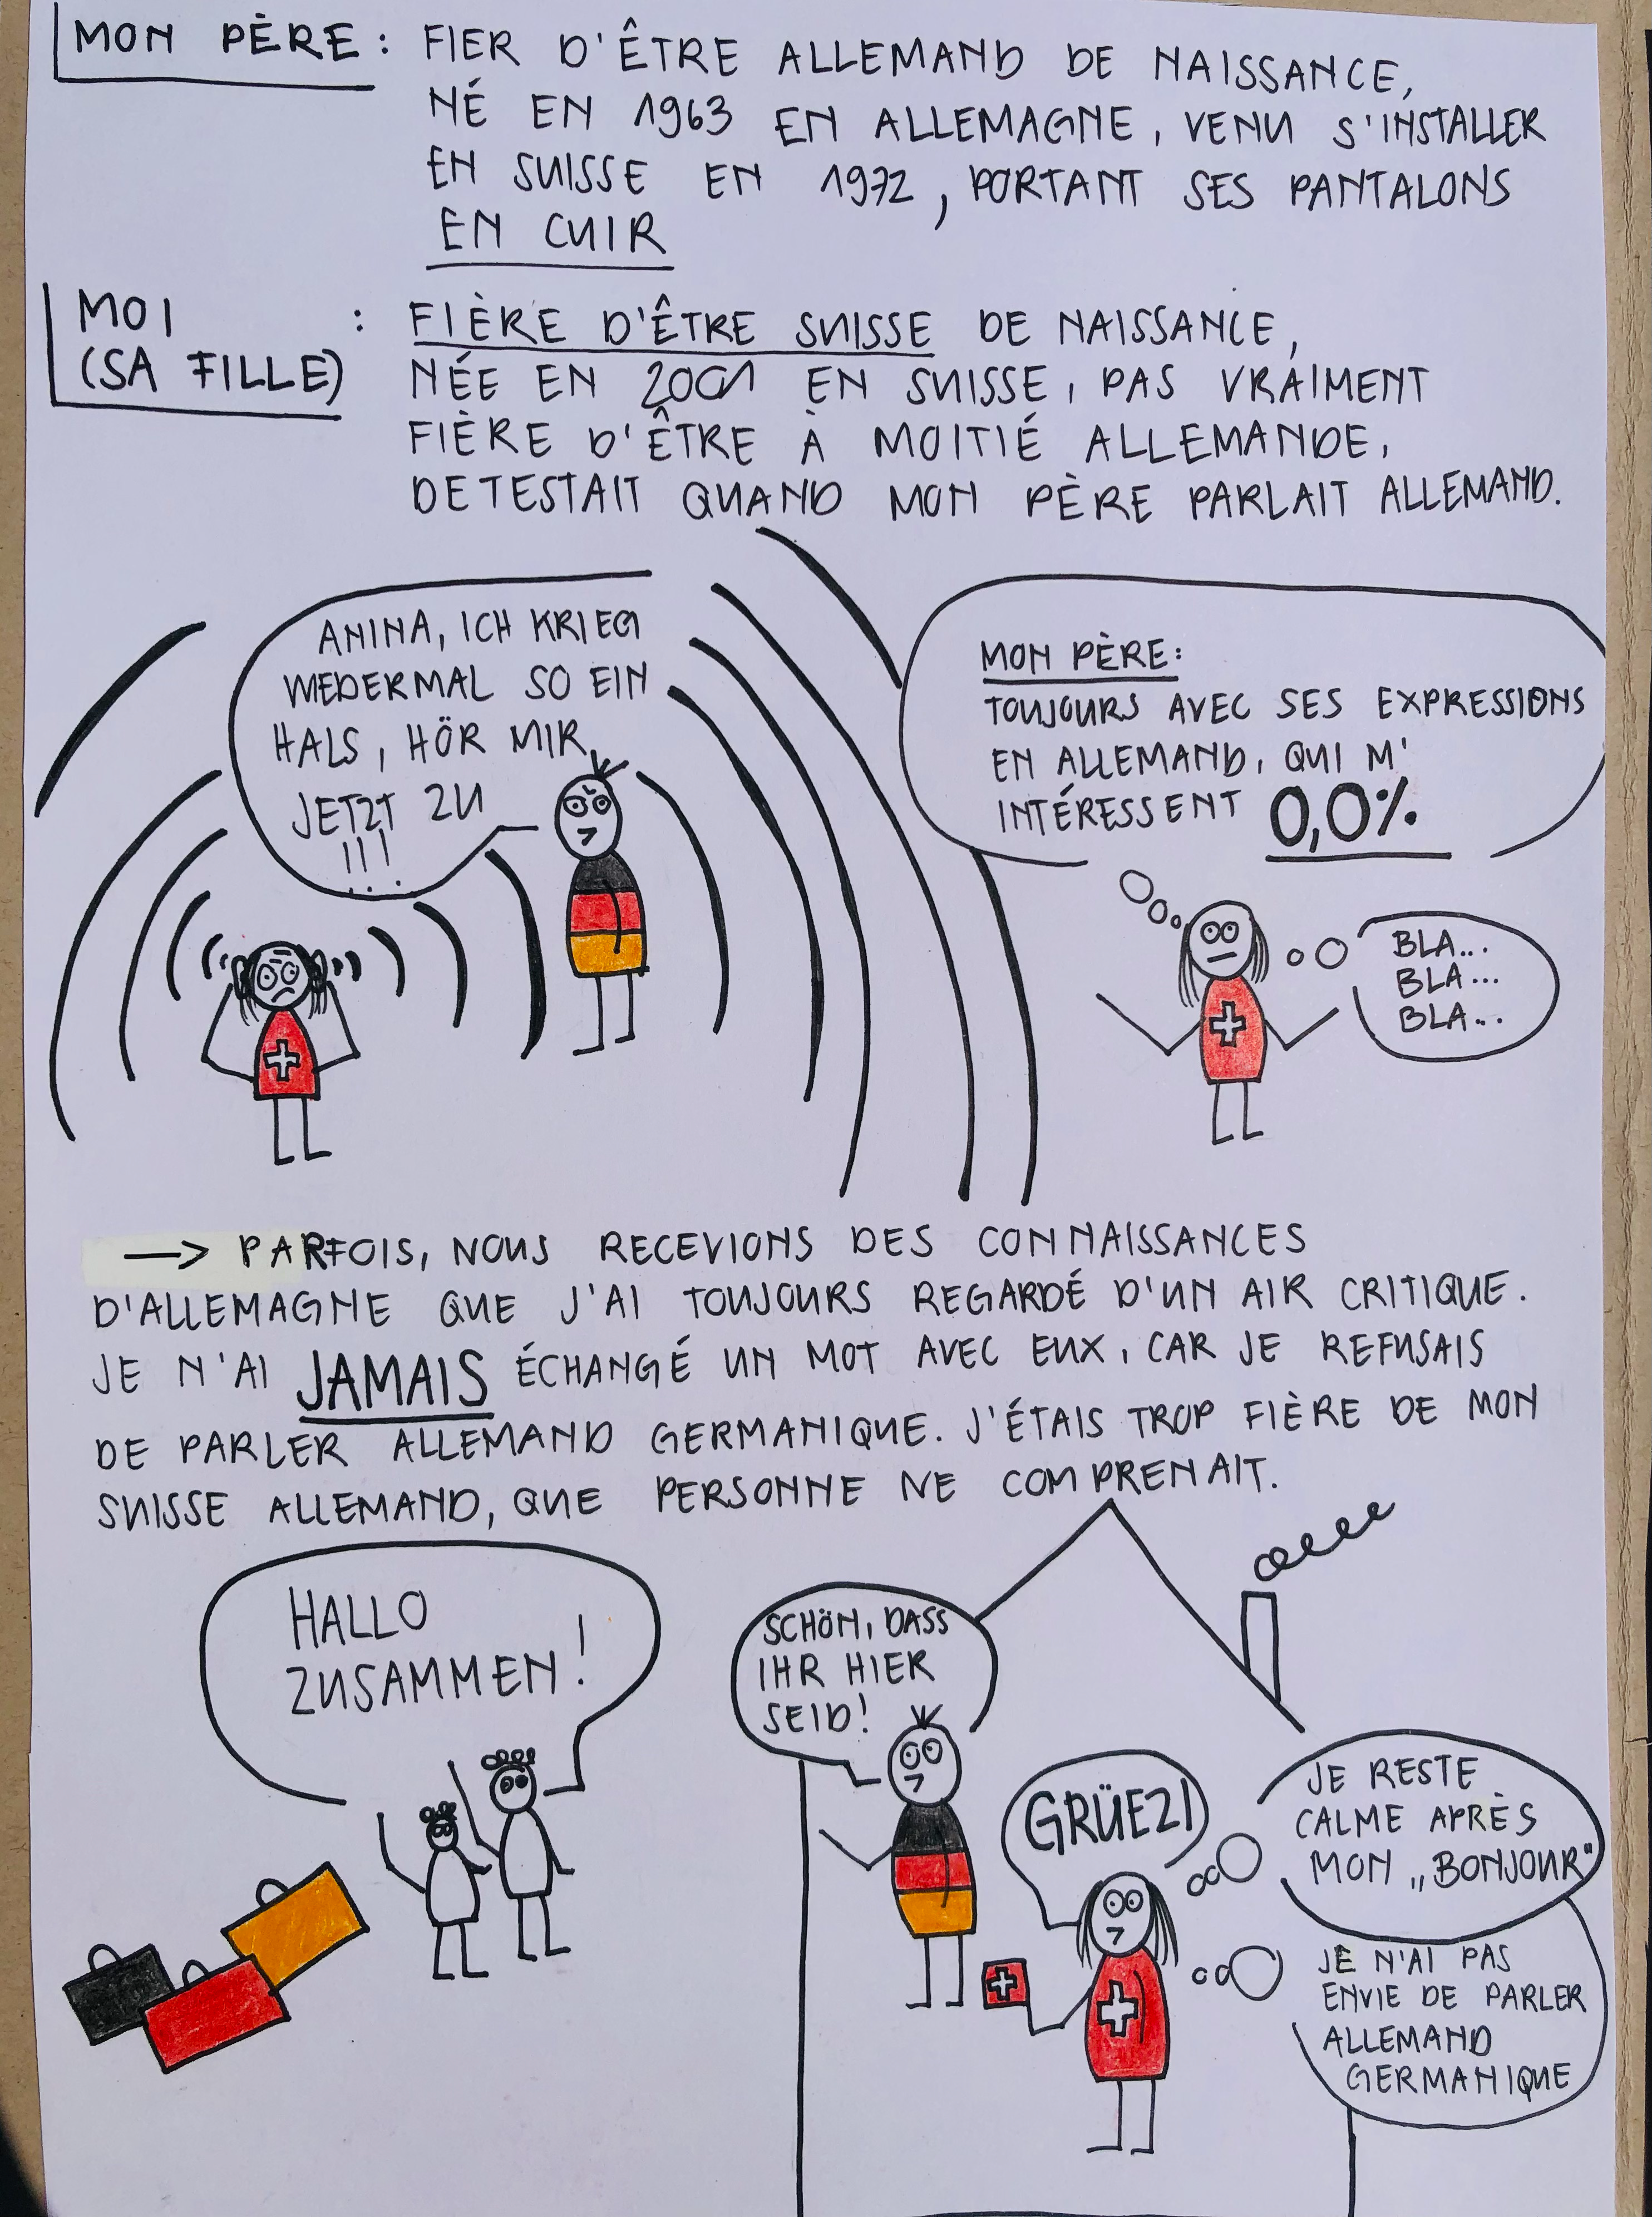 MON PÈRE : FIER D'ÊTRE ALLEMAND DE NAISSANCE,
NÉ EN 1963 EN ALLEMAGNE, VENU S'INSTALLER
EN SUISSE EN 1972, PORTANT SES PANTALONS
EN CUIR
MOI
(SA FILLE) : FIÈRE D'ÊTRE SUISSE DE NAISSANCE,
NÉE EN 2001 EN SUISSE, PAS VRAIMENT
FIÈRE D'ÊTRE À MOITIÉ ALLEMANDE,
DETESTAIT QUAND MON PÈRE PARLAIT ALLEMAND.
ANINA, ICH KRIEG
WIEDERMAL SO EIN
HALS, HÖR MIR
JETZT ZU
!!!
MON PÈRE:
TOUJOURS AVEC SES EXPRESSIONS
EN ALLEMAND, QUI M'
INTÉRESSENT 0,0%
BLA...
BLA...
BLA...
→ PARFOIS, NOUS RECEVIONS DES CONNAISSANCES
D'ALLEMAGNE QUE J'AI TOUJOURS REGARDÉ D'UN AIR CRITIQUE.
JE N'AI JAMAIS ÉCHANGÉ UN MOT AVEC EUX, CAR JE REFUSAIS
DE PARLER ALLEMAND GERMANIQUE. J'ÉTAIS TROP FIÈRE DE MON
SUISSE ALLEMAND, QUE PERSONNE NE COMPRENAIT.
HALLO
ZUSAMMEN!
SCHÖN, DASS
IHR HIER
SEID!
GRÜEZI
JE RESTE
CALME APRÈS
MON „BONJOUR"
JE N'AI PAS
ENVIE DE PARLER
ALLEMAND
GERMANIQUE